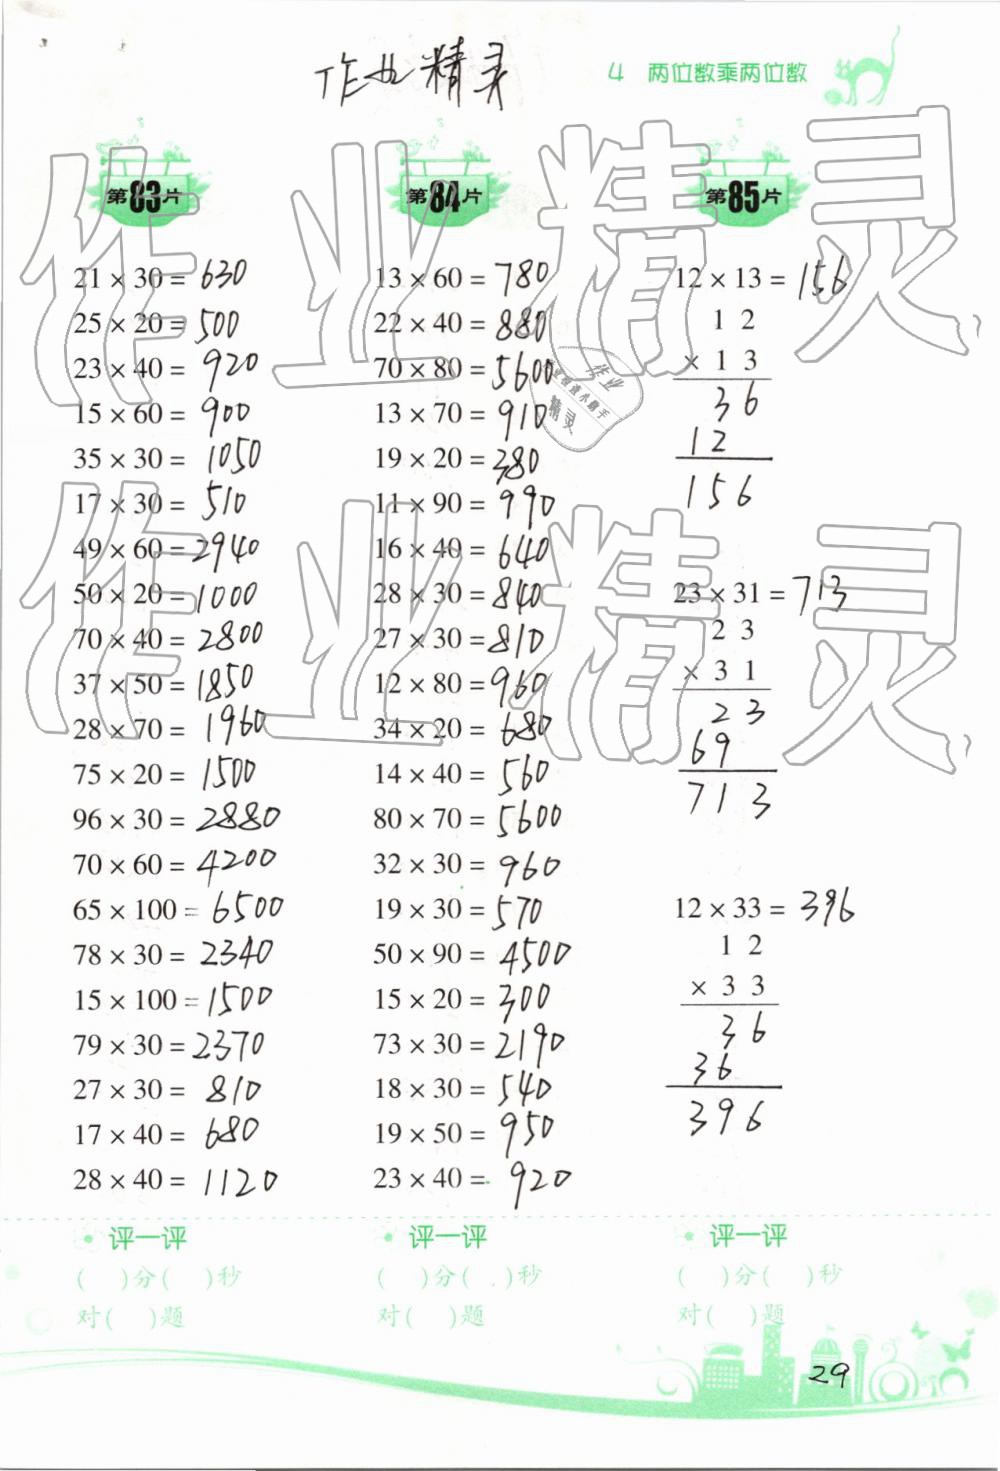 作业精灵
4 两位数乘两位数
第83片
21 × 30 = 630
25 × 20 = 500
23 × 40 = 920
15 × 60 = 900
35 × 30 = 1050
17 × 30 = 510
49 × 60 = 2940
50 × 20 = 1000
70 × 40 = 2800
37 × 50 = 1850
28 × 70 = 1960
75 × 20 = 1500
96 × 30 = 2880
70 × 60 = 4200
65 × 100 = 6500
78 × 30 = 2340
15 × 100 = 1500
79 × 30 = 2370
27 × 30 = 810
17 × 40 = 680
28 × 40 = 1120
评一评
( )分( )秒
对( )题
第84片
13 × 60 = 780
22 × 40 = 880
70 × 80 = 5600
13 × 70 = 910
19 × 20 = 380
11 × 90 = 990
16 × 40 = 640
28 × 30 = 840
27 × 30 = 810
12 × 80 = 960
34 × 20 = 680
14 × 40 = 560
80 × 70 = 5600
32 × 30 = 960
19 × 30 = 570
50 × 90 = 4500
15 × 20 = 300
73 × 30 = 2190
18 × 30 = 540
19 × 50 = 950
23 × 40 = 920
评一评
( )分( )秒
对( )题
第85片
12 × 13 = 156
1 2
× 1 3
3 6
1 2
1 5 6
23 × 31 = 713
2 3
× 3 1
2 3
6 9
7 1 3
12 × 33 = 396
1 2
× 3 3
3 6
3 6
3 9 6
评一评
( )分( )秒
对( )题
29
作业精灵
作业精灵
作业
精灵